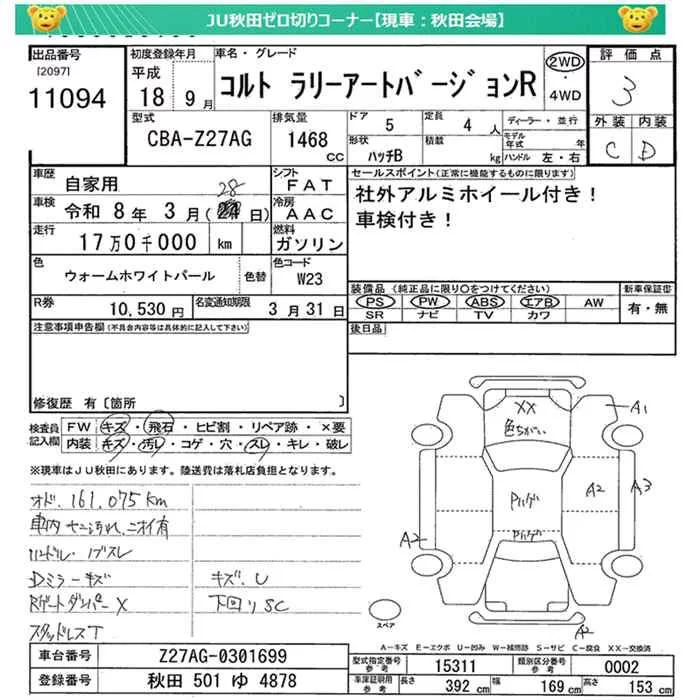 JU秋田ゼロ切りコーナー【現車：秋田会場】
出品番号
[2097]
11094
初度登録年月
平成
18 9月
車名・グレード
コルト ラリーアートバージョンR
2WD
・
4WD
評価点
3
型式
CBA-Z27AG
排気量
1468
cc
ドア
5
定員
4 人
形状
ハッチB
積載
kg
ディーラー・並行
モデル
年式 年
ハンドル 左・右
外装 内装
C D
車歴
自家用
シフト
FAT
車検
令和 8年 3月( 28日)
冷房
AAC
走行
17万0千000 km
燃料
ガソリン
色
ウォームホワイトパール
色替
色コード
W23
R券
10,530円
名変通知期限
3月31日
セールスポイント(正常に機能するものに限ります)
社外アルミホイール付き！
車検付き！
装備品 (純正品に限り○をつけてください)
新車保証書
PS PW ABS エアB AW
有・無
SR ナビ TV カワ
後日品
注意事項申告欄(不具合内容等は具体的に記入して下さい)
修復歴 有〔箇所 〕
検査員
記入欄
FW キズ・飛石・ヒビ割・リペア跡・×要
内装 キズ・汚レ・コゲ・穴・スレ・キレ・破レ
※現車はJU秋田にあります。陸送費は落札店負担となります。
オド. 161,075km
車内 ヤニ汚れ、ニオイ有
ハンドル・ノブスレ
Dミラーキズ
キズ. U
Rゲートダンパー X
下回りSC
スタッドレスT
XX
色ちがい
A1
Pハゲ
A2
A3
Pハゲ
A2
A2
スペア
A－キズ E－エクボ U－凹み W－補修跡 S－サビ C－腐食 XX－交換済
車台番号
Z27AG-0301699
登録番号
秋田 501 ゆ 4878
型式指定番号
参考
15311
類別区分番号
参考
0002
車庫証明用
参考
長さ
392 cm
幅
169 cm
高さ
153 cm